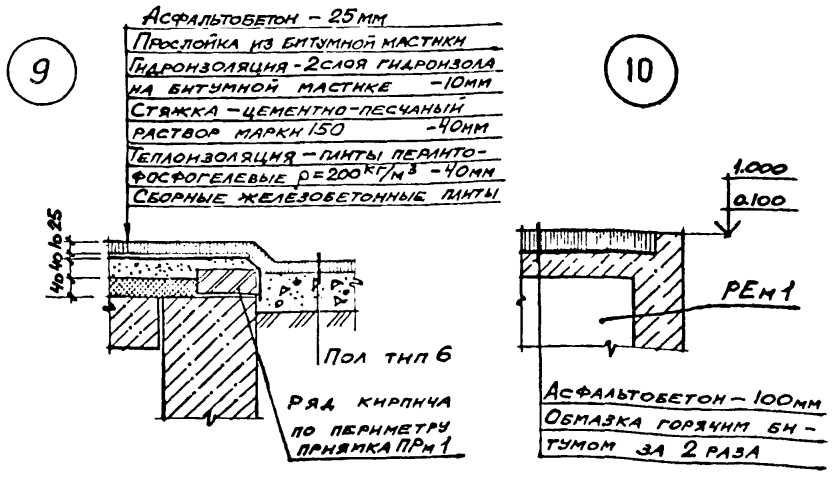 9
Асфальтобетон – 25мм
Прослойка из битумной мастики
Гидроизоляция – 2 слоя гидроизола
на битумной мастике – 10мм
Стяжка – цементно-песчаный
раствор марки 150 – 40мм
Теплоизоляция – плиты перлито-
фосфогелевые ρ=200кг/м³ – 40мм
Сборные железобетонные плиты
40 40 10 25
Пол тип 6
Ряд кирпича
по периметру
приямка ПРм1
10
1.000
0.100
РЕм1
Асфальтобетон – 100мм
Обмазка горячим би-
тумом за 2 раза